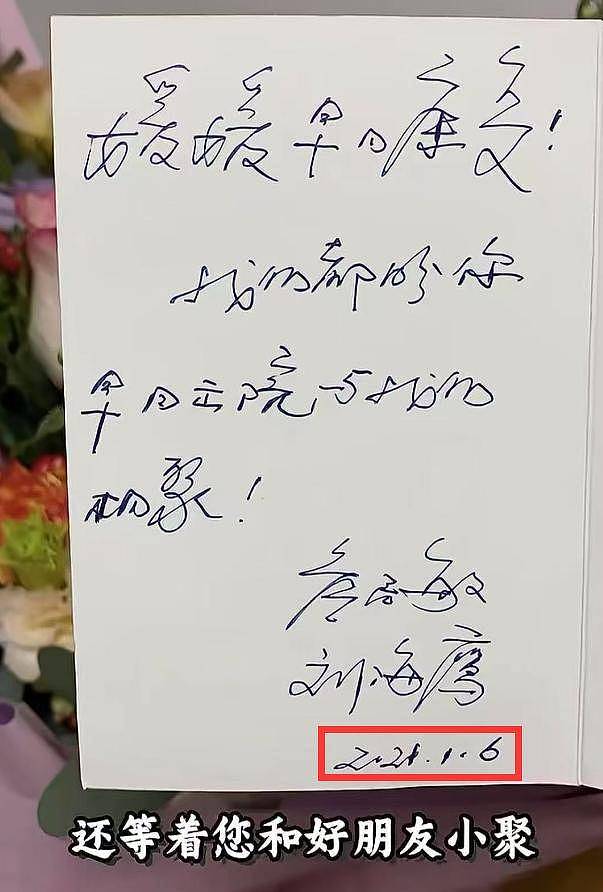 媛媛早日康复！
我们都盼你
早日出院与我们
相聚！
詹秀敏
刘海鹰
2021.1.6
还等着您和好朋友小聚